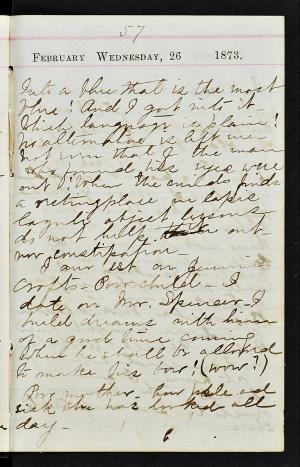 57
FEBRUARY WEDNESDAY, 26 1873.
Into a blue that is the most
blue! And I got into it.
language is plain!
No alternative is left me
not even that of the man
who found his eyes were
out! When the mind finds
a resting place in lapis
lazuli object lessons
do not help
constipation
I am out on Jennie
Crofts. Poor child. I
date on Mr. Spencer. I
build dreams with him
of a good time coming
when he shall be allowed
to make his bow! (wow?)
Poor mother. how pale and
sick she has looked all
day.
6